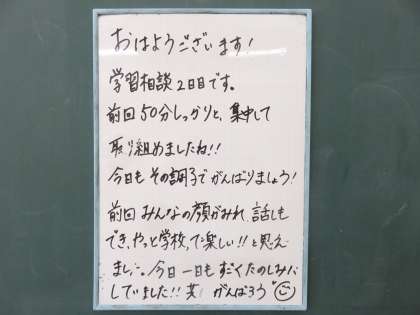 おはようございます!
学習相談2日目です。
前回50分しっかりと、集中して
取り組めましたね!!
今日もその調子でがんばりましょう!
前回みんなの顔がみれ、話しも
でき、やっと学校って楽しい!!と思え
ました。今日一日もすごくたのしみに
していました!! がんばろう